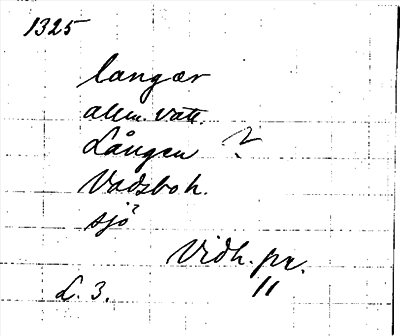 1325
langær
alem. vatt.
Lången ?
Vadsbo h.
sjö?
Vidh. pr.
11
L. 3.